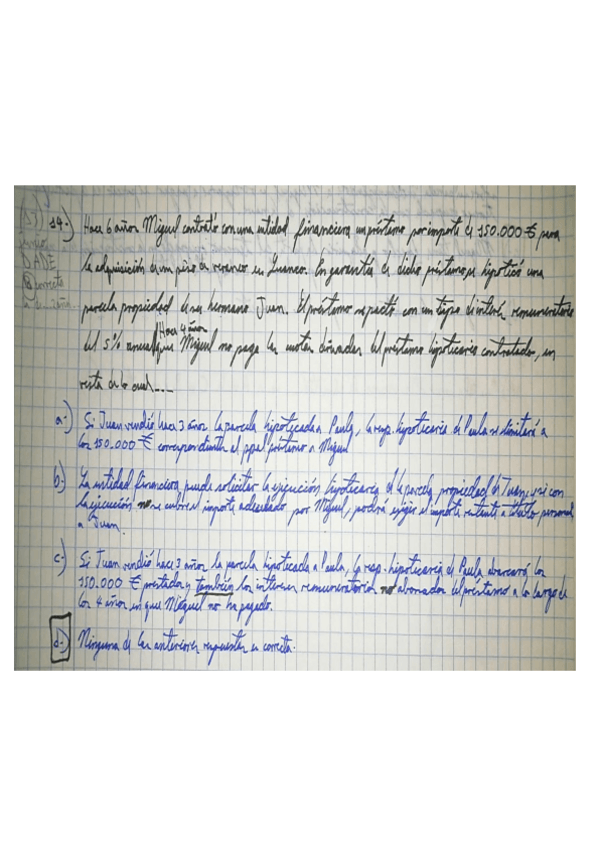 14.-) Hace 6 años Miguel contrató con una entidad financiera un préstamo por importe de 150.000 € para
la adquisición de un piso de veraneo en Luanco. En garantía de dicho préstamo se hipotecó una
parcela propiedad de su hermano Juan. El préstamo se pactó con un tipo de interés remuneratorio
del 5% anual. Hace 4 años que Miguel no paga las cuotas derivadas del préstamo hipotecario contratado, en
vista de lo cual....
a-) Si Juan vendió hace 3 años la parcela hipotecada a Paula, la resp. hipotecaria de Paula se limitará a
los 150.000 € correspondientes al ppal préstamo a Miguel
b-) La entidad financiera puede solicitar la ejecución hipotecaria de la parcela propiedad de Juan, y si con
la ejecución no se cubre el importe adeudado por Miguel, podrá exigir el importe restante a título personal
a Juan.
c-) Si Juan vendió hace 3 años la parcela hipotecada a Paula, la resp. hipotecaria de Paula abarcará los
150.000 € prestados y también los intereses remuneratorios no abonados del préstamo a lo largo de
los 4 años en que Miguel no ha pagado.
d-) Ninguna de las anteriores respuestas es correcta.